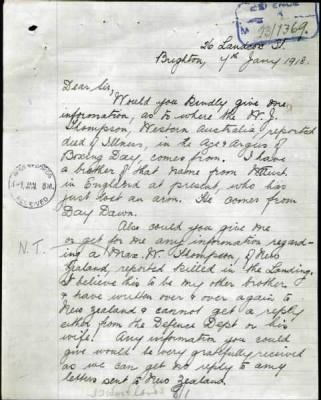 DEFENCE
93/1369.
26 Landcox St.
Brighton, 4th Jany 1918.
Dear Sir,
Would you kindly give me
information, as to where the W. J.
Thompson, Western Australia reported
died of Illness, in the Age & Argus of
Boxing Day, comes from. I have
a brother of that name from West
in England at present, who has
just lost an arm. He comes from
Day Dawn.
RECEIVED
Also could you give me
N.T.
or get for me any information regard-
ing a Max. W. Thompson, of New
Zealand, reported killed in the Landing.
I believe this to be my other brother
& have written over & over again to
New Zealand & cannot get a reply
either from the Defence Dept or his
wife. Any information you could
give would be very gratefully received
as we can get no reply to any
letters sent to New Zealand.